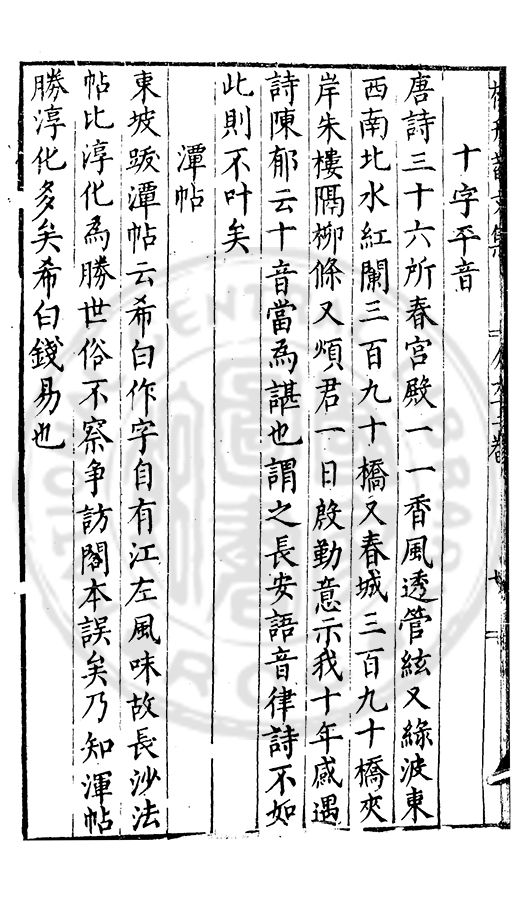 十字平音
唐詩三十六所春宮殿一一香風透管絃又緑波東
西南北水紅闌三百九十橋又春城三百九十橋夾
岸朱樓隔柳條又煩君一日殷勤意示我十年感遇
詩陳郁云十音當為諶也謂之長安語音律詩不如
此則不叶矣
潭帖
東坡跋潭帖云希白作字自有江左風味故長沙法
帖比淳化為勝世俗不察爭訪閣本誤矣乃知渾帖
勝淳化多矣希白錢易也